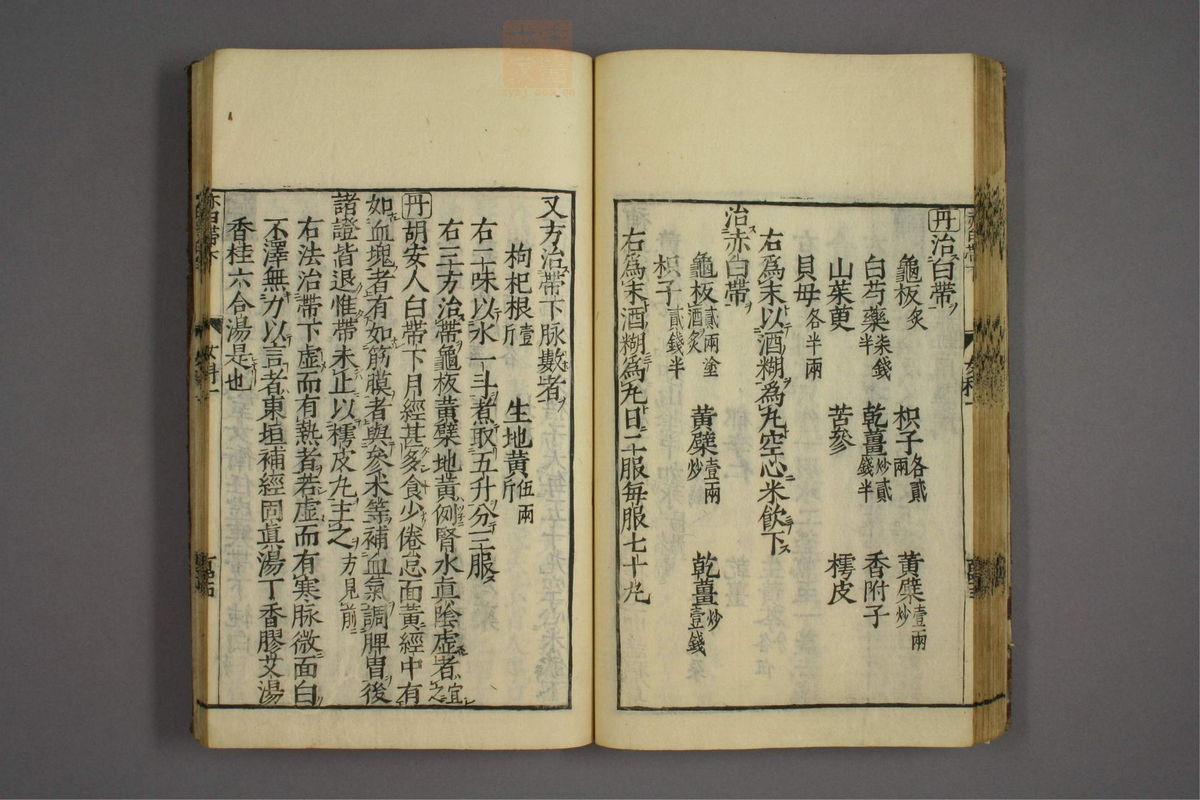 丹治白帶
龜板炙 枳子各貳兩 黃檗炒壹兩
白芍藥柒錢半 乾薑炒貳錢半 香附子
山茱萸 苦參 樗皮
貝母各半兩
右爲末以酒糊爲丸空心米飮下
治赤白帶
龜板貳兩塗酒炙 黃檗炒壹兩 乾薑炒壹錢
枳子貳錢半
右爲末酒糊爲丸日二服每服七十丸
又方治帶下脉數者
枸杞根壹斤 生地黃伍兩斤
右二味以水一斗煮取五升分三服
右三方治帶龜板黃檗地黃例腎水眞陰虛者宜之
丹胡安人白帶下月經甚多食少倦怠面黃經中有
如血塊者有如筋膜者與參朮等補血氣調脾胃後
諸證皆退惟帶未止以樗皮丸主之方見前
右法治帶下虛而有熱者若虛而有寒脉微面白
不澤無力以言者東垣補經固眞湯丁香膠艾湯
香桂六合湯是也